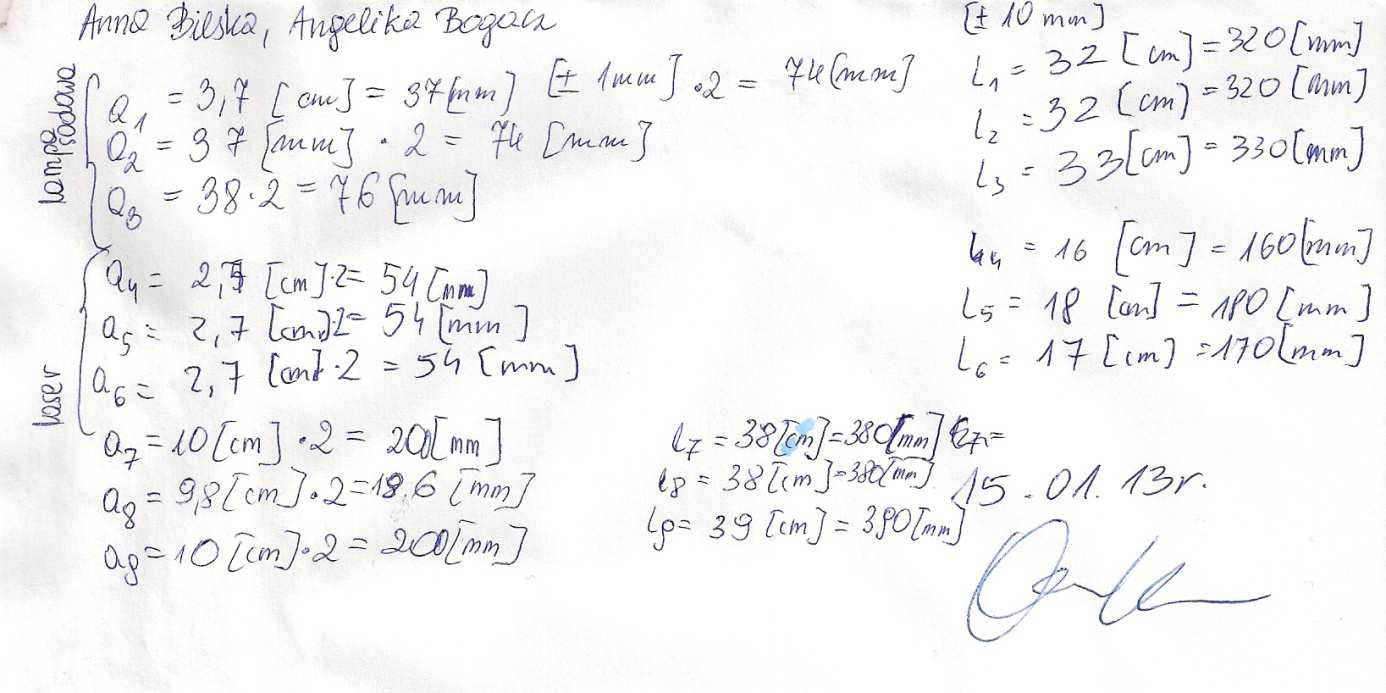 Anna Bielska, Angelika Bogacz
lampa sodowa
a1 = 3,7 [cm] = 37[mm] [± 1mm] · 2 = 74[mm]
a2 = 37 [mm] · 2 = 74 [mm]
a3 = 38 · 2 = 76 [mm]
laser
a4 = 2,7 [cm]·2= 54[mm]
a5 = 2,7 [cm]·2= 54[mm]
a6 = 2,7 [cm]·2 = 54 [mm]
a7 = 10[cm] · 2 = 200[mm]
a8 = 9,8[cm] · 2 = 19,6 [mm]
a9 = 10[cm] · 2 = 200[mm]
[± 10 mm]
L1 = 32 [cm] = 320[mm]
L2 = 32 [cm] = 320 [mm]
L3 = 33[cm] = 330[mm]
L4 = 16 [cm] = 160[mm]
L5 = 18 [cm] = 180[mm]
L6 = 17 [cm] = 170[mm]
l7 = 38[cm]=380[mm]
l8 = 38[cm]=380[mm]
l9 = 39 [cm] = 390[mm]
15.01.13r.